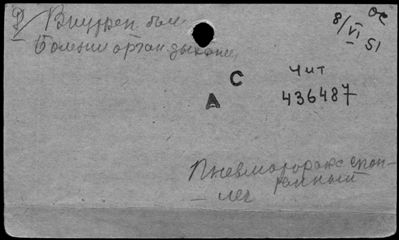 Внутрен. бол
Болезни орган дыхания
ОС
8/VI 51
С
А
Чит
436487
Пневмоторакс спон-
танный
— лег